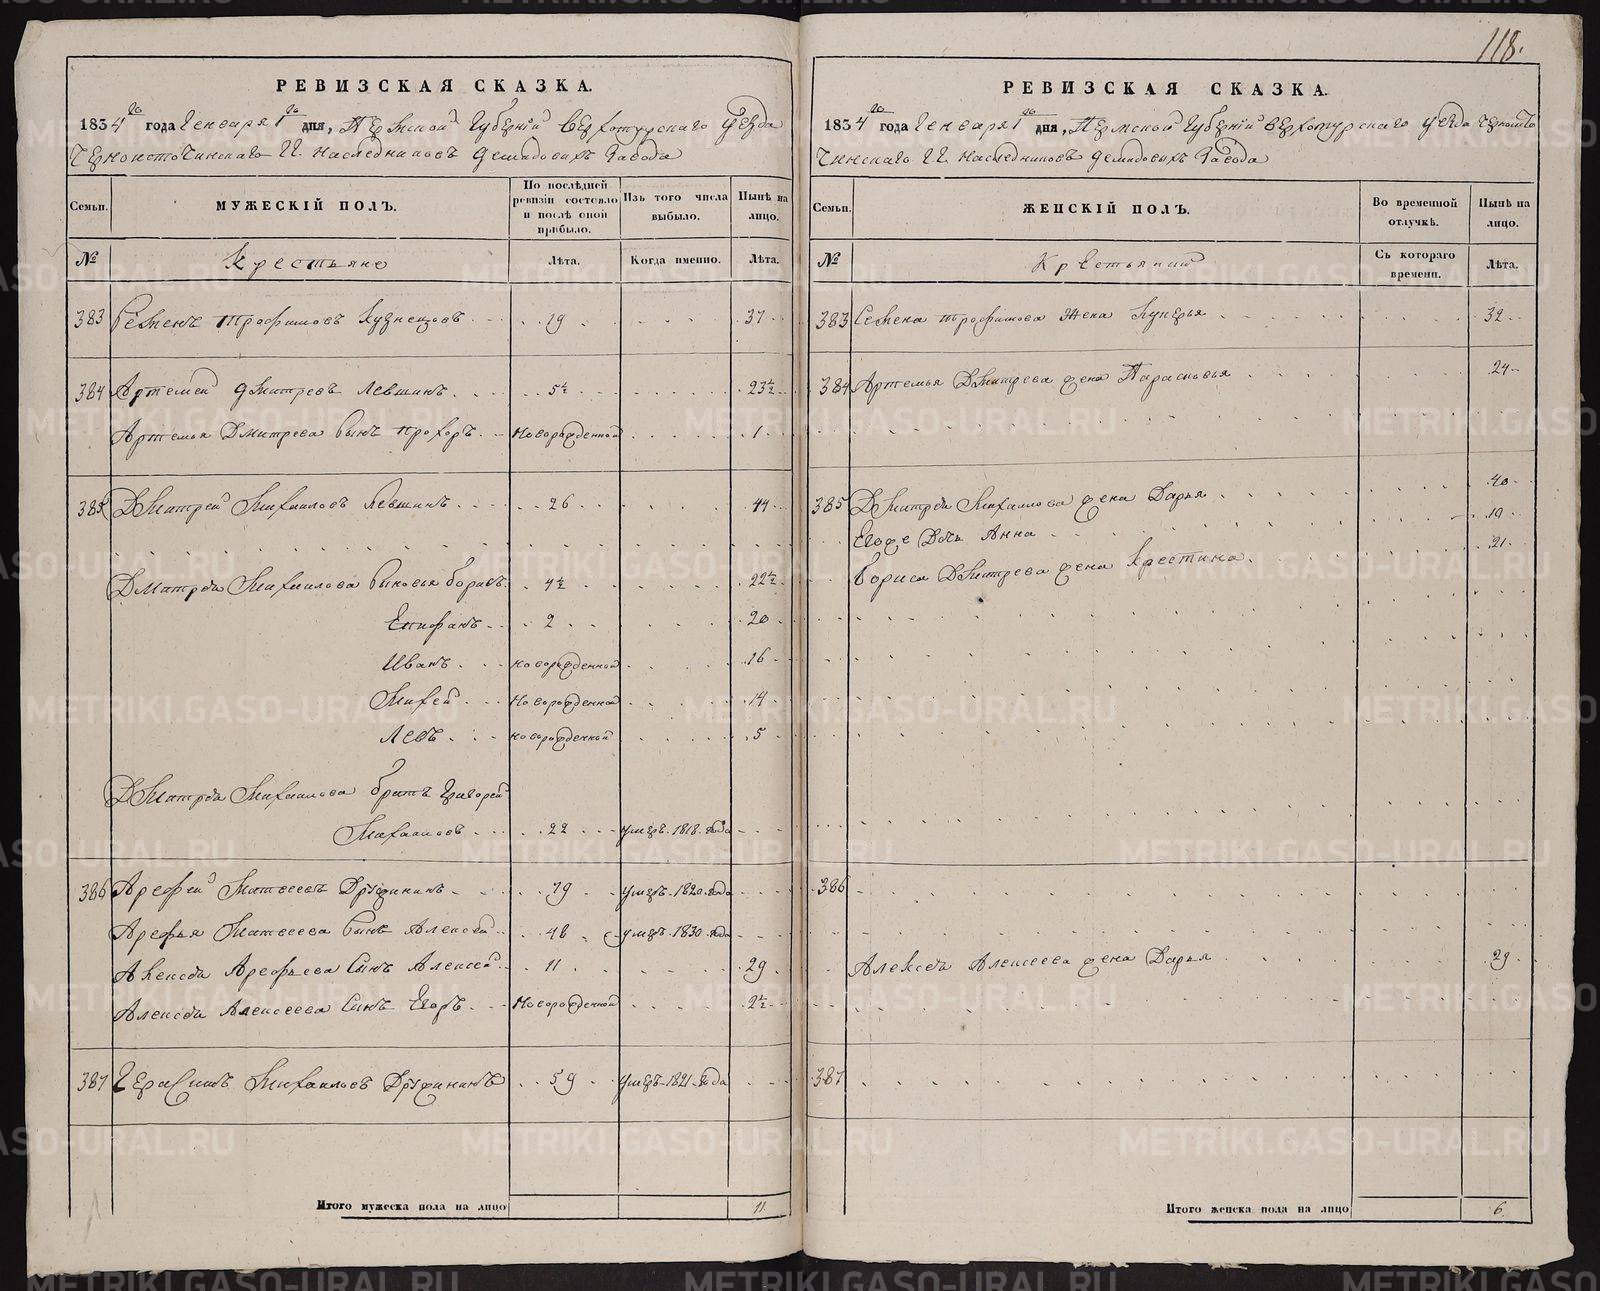 118.
РЕВИЗСКАЯ СКАЗКА.
1834го года Генваря 1го дня, Пермской Губернiи Верхотурскаго уезда
Черноисточинскаго Г.Г. Наследниковъ Демидовыхъ Завода
Семьи. МУЖЕСКІЙ ПОЛЪ. По послѣдней ревизіи состояло и послѣ оной прибыло. Изъ того числа выбыло. Нынѣ на лицо.
№ Крестьяне Лѣта. Когда именно. Лѣта.
383 Семенъ Трофимовъ Кузнецовъ 19 37
384 Артемей Дмитревъ Левшинъ 5½ 23½
Артемья Дмитрева сынъ Прохоръ Новорожденной 1
385 Дмитрей Михайловъ Левшинъ 26 44
Дмитрея Михаилова сыновья Борисъ 4½ 22½
Епифанъ 2 20
Иванъ новорожденной 16
Михей Новорожденной 14
Левъ новорожденной 5
Дмитрея Михаилова братъ Григорей
Михаиловъ 22 умеръ 1818 года
386 Арефей Матвеевъ Дружининъ 79 умеръ 1820 года
Арефья Матвеева сынъ Алексей 48 умеръ 1830 года
Алексея Арефьева сынъ Алексей 11 29
Алексея Алексеева сынъ Егоръ Новорожденной 2½
387 Герасимъ Михаиловъ Дружининъ 59 умеръ 1821 года
Итого мужеска пола на лицо 11
РЕВИЗСКАЯ СКАЗКА.
1834го года Генваря 1го дня, Пермской Губернiи Верхотурскаго уезда Черноисто
чинскаго Г.Г. Наследниковъ Демидовыхъ Завода
Семьи. ЖЕНСКІЙ ПОЛЪ. Во временной отлучкѣ. Нынѣ на лицо.
№ Крестьянки Съ котораго времени. Лѣта.
383 Семена Трофимова жена Лукерья 32
384 Артемья Дмитрева жена Парасковья 24
385 Дмитрея Михаилова жена Дарья 40
Егоже дочь Анна 19
Бориса Дмитрева жена Крестина 21
386
Алексея Алексеева жена Дарья 29
387
Итого женска пола на лицо 6
METRIKI.GASO-URAL.RU